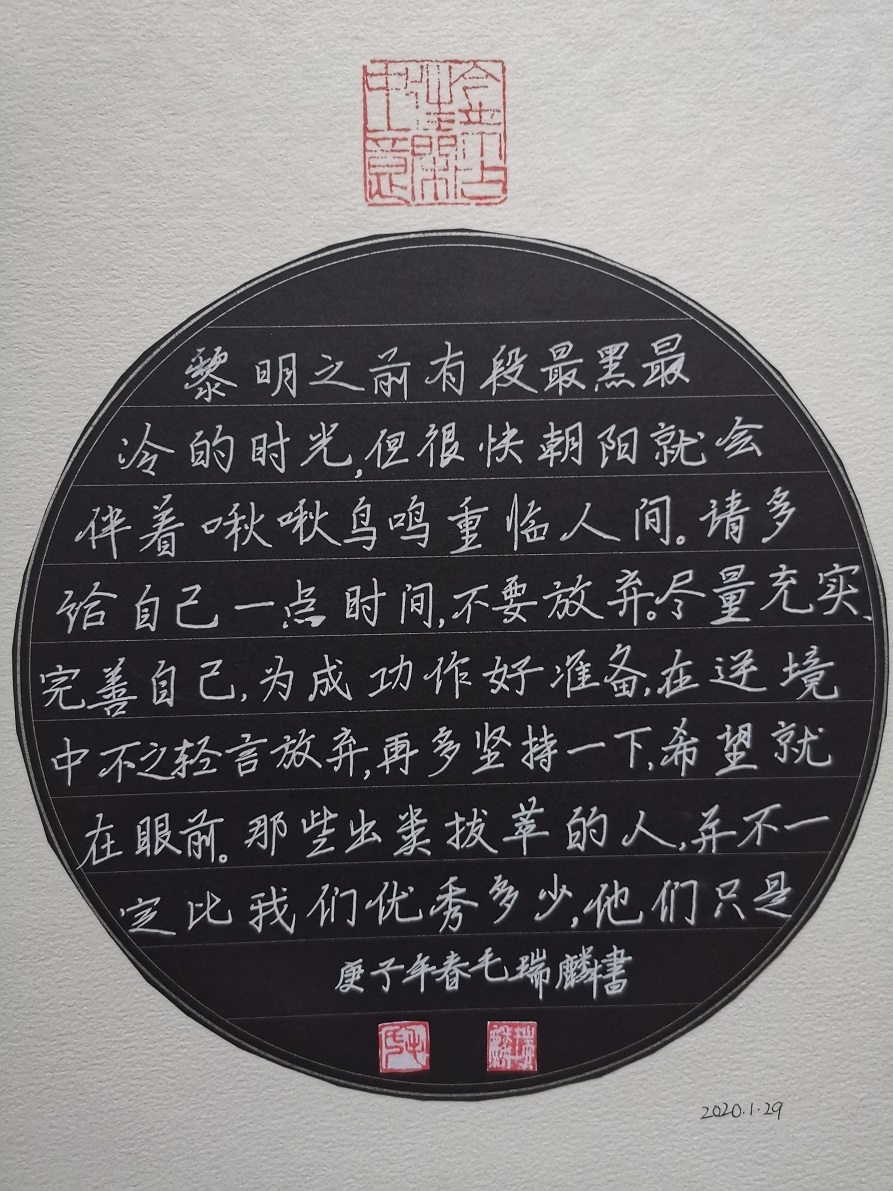 黎明之前有段最黑最
冷的时光,但很快朝阳就会
伴着啾啾鸟鸣重临人间。请多
给自己一点时间,不要放弃。尽量充实、
完善自己,为成功作好准备,在逆境
中不之轻言放弃,再多坚持一下,希望就
在眼前。那些出类拔萃的人,并不一
定比我们优秀多少,他们只是
庚子年春毛瑞麟书
2020.1.29